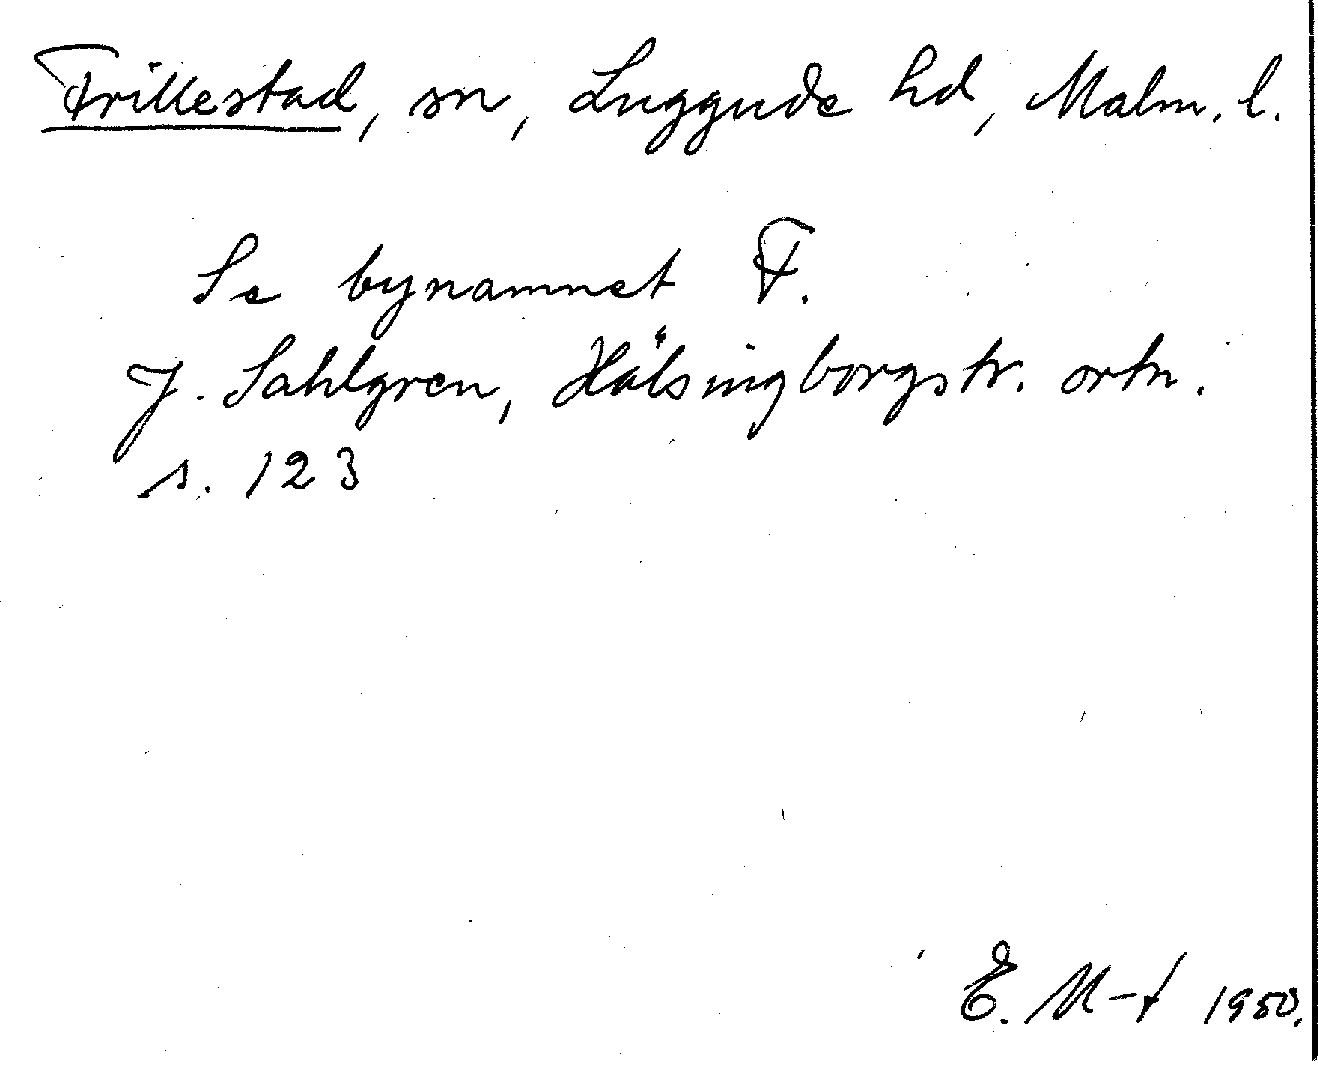 Frillestad, sn, Luggude hd, Malm. l.
Se bynamnet F.
J. Sahlgren, Hälsingborgstr. ortn.
s. 123
E. M-t 1950.